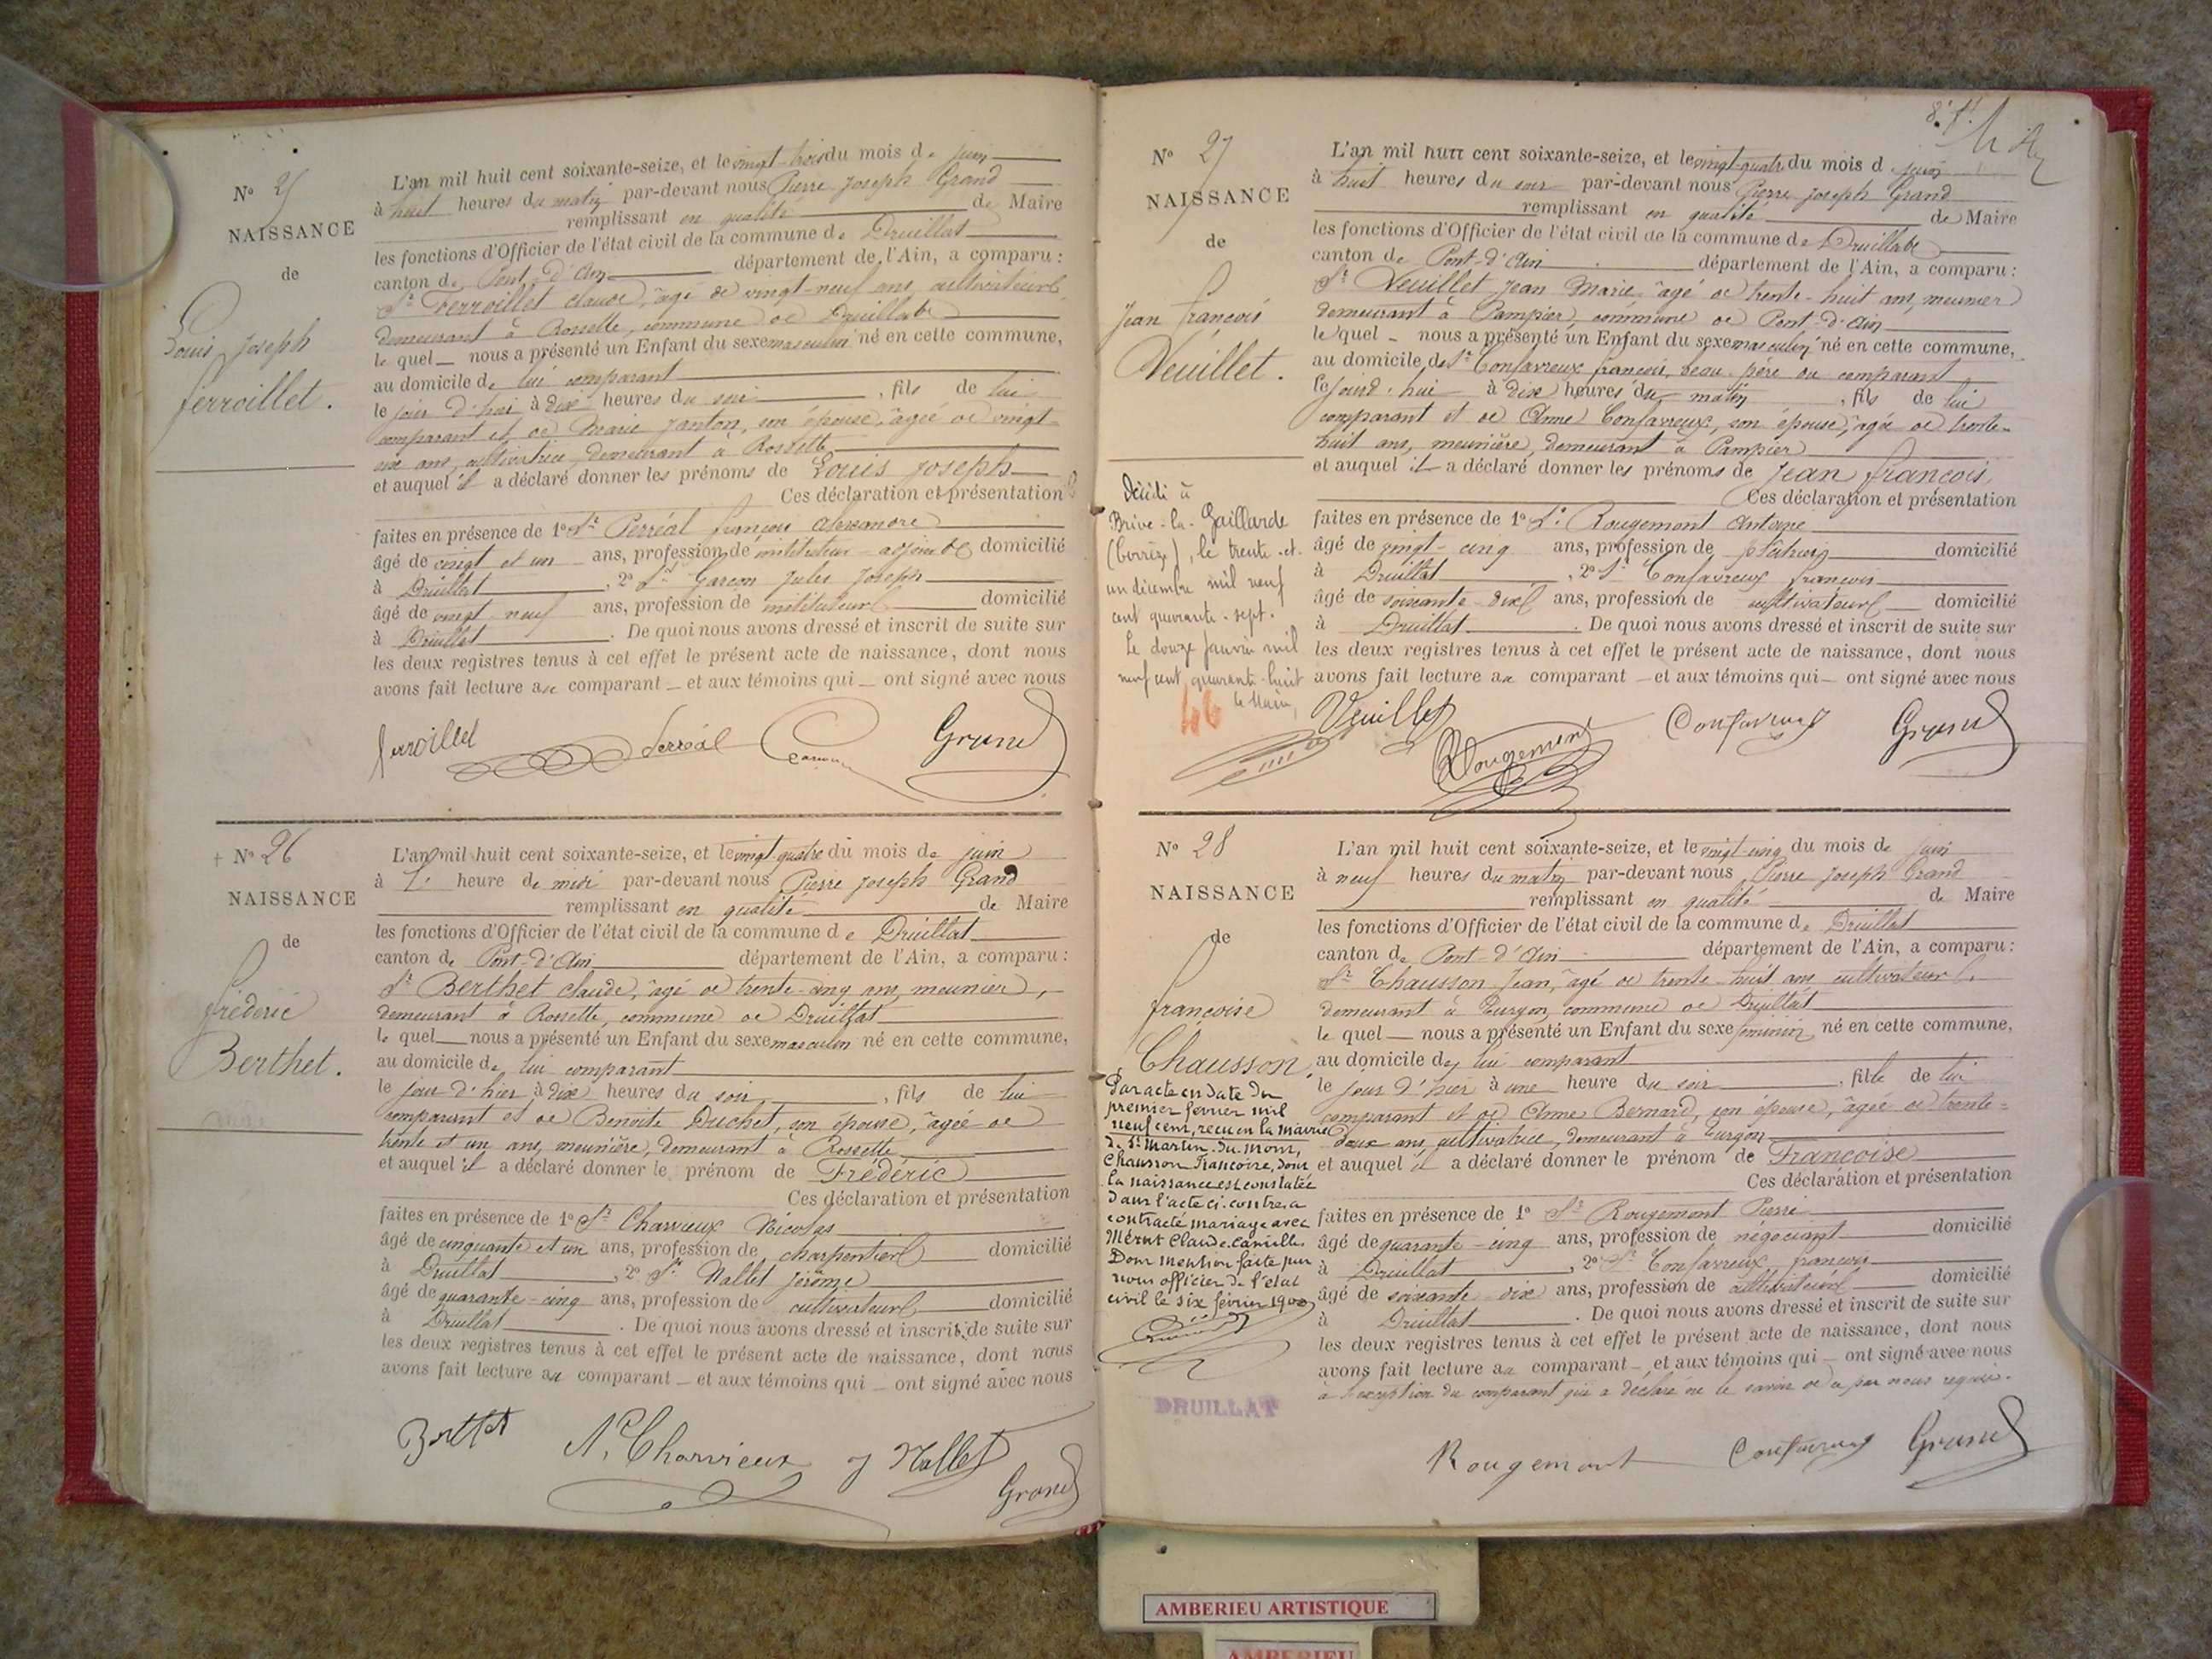 N° 25
NAISSANCE
de
Louis Joseph
ferroillet.
L'an mil huit cent soixante-seize, et le vingt-trois du mois de juin
à huit heures du matin par-devant nous Pierre Joseph Grand
remplissant en qualité de Maire
les fonctions d'Officier de l'état civil de la commune de Druillat
canton de Pont-d'Ain département de l'Ain, a comparu :
Sr ferroillet claude, âgé de vingt-neuf ans, cultivateur
demeurant à Rossette, commune de Druillat
le quel nous a présenté un Enfant du sexe masculin né en cette commune,
au domicile de lui comparant
le jour d'hui à dix heures du soir, fils de lui
comparant et de Marie Janton, son épouse, âgée de vingt-
six ans, cultivatrice, demeurant à Rossette
et auquel il a déclaré donner les prénoms de Louis Joseph
Ces déclaration et présentation
faites en présence de 1° Sr Perréal françois Alexandre
âgé de vingt et un ans, profession de instituteur-adjoint domicilié
à Druillat, 2° Sr Garçon Jules Joseph
âgé de vingt-neuf ans, profession de instituteur domicilié
à Druillat. De quoi nous avons dressé et inscrit de suite sur
les deux registres tenus à cet effet le présent acte de naissance, dont nous
avons fait lecture au comparant et aux témoins qui ont signé avec nous
ferroillet Perréal Garçon Grand
N° 26
NAISSANCE
de
frédéric
Berthet.
L'an mil huit cent soixante-seize, et le vingt-quatre du mois de juin
à heure de midi par-devant nous Pierre Joseph Grand
remplissant en qualité de Maire
les fonctions d'Officier de l'état civil de la commune de Druillat
canton de Pont-d'Ain département de l'Ain, a comparu :
Sr Berthet claude, âgé de trente-cinq ans, meunier,
demeurant à Rossette, commune de Druillat
le quel nous a présenté un Enfant du sexe masculin né en cette commune,
au domicile de lui comparant
le jour d'hier à dix heures du soir, fils de lui
comparant et de Benoite Duchet, son épouse, âgée de
trente et un ans, meunière, demeurant à Rossette
et auquel il a déclaré donner le prénom de Frédéric
Ces déclaration et présentation
faites en présence de 1° Sr Charvieux Nicolas
âgé de cinquante et un ans, profession de charpentier domicilié
à Druillat, 2° Sr Nallet jérôme
âgé de quarante-cinq ans, profession de cultivateur domicilié
à Druillat. De quoi nous avons dressé et inscrit de suite sur
les deux registres tenus à cet effet le présent acte de naissance, dont nous
avons fait lecture au comparant et aux témoins qui ont signé avec nous
Berthet N. Charvieux J Nallet Grand
N° 27
NAISSANCE
de
Jean françois
Veuillet.
Décédé à
Brive-la-Gaillarde
(Corrèze), le trente-et-
un décembre mil neuf
cent quarante-sept.
Le douze Janvier mil
neuf cent quarante-huit
le Maire,
46
L'an mil huit cent soixante-seize, et le vingt-quatre du mois de juin
à huit heures du soir par-devant nous Pierre Joseph Grand
remplissant en qualité de Maire
les fonctions d'Officier de l'état civil de la commune de Druillat
canton de Pont-d'Ain département de l'Ain, a comparu :
Sr Veuillet Jean Marie, âgé de trente-huit ans, meunier
demeurant à Pampier, commune de Pont-d'Ain
le quel nous a présenté un Enfant du sexe masculin né en cette commune,
au domicile de Sr Confavreux françois, beau-père du comparant
le jourd'hui à dix heures du matin, fils de lui
comparant et de Anne Confavreux, son épouse, âgée de trente-
huit ans, meunière, demeurant à Pampier
et auquel il a déclaré donner les prénoms de Jean françois
Ces déclaration et présentation
faites en présence de 1° Sr Rougemont Antoine
âgé de vingt-cinq ans, profession de domicilié
à Druillat, 2° Sr Confavreux françois
âgé de soixante-dix ans, profession de cultivateur domicilié
à Druillat. De quoi nous avons dressé et inscrit de suite sur
les deux registres tenus à cet effet le présent acte de naissance, dont nous
avons fait lecture au comparant et aux témoins qui ont signé avec nous
Veuillet Rougemont Confavreux Grand
N° 28
NAISSANCE
de
françoise
Chausson
Par acte en date du
premier février mil
neuf cent, reçu en la mairie
de St Martin-du-Mont,
Chausson Françoise, dont
la naissance est constatée
dans l'acte ci-contre, a
contracté mariage avec
Mérut Claude Camille.
Dont mention faite par
nous officier de l'état
civil le six février 1900
DRUILLAT
L'an mil huit cent soixante-seize, et le vingt-cinq du mois de juin
à neuf heures du matin par-devant nous Pierre Joseph Grand
remplissant en qualité de Maire
les fonctions d'Officier de l'état civil de la commune de Druillat
canton de Pont-d'Ain département de l'Ain, a comparu :
Sr Chausson Jean, âgé de trente-huit ans, cultivateur,
demeurant à Turgon, commune de Druillat
le quel nous a présenté un Enfant du sexe féminin né en cette commune,
au domicile de lui comparant
le jour d'hier à une heure du soir, fille de lui
comparant et de Anne Bernard, son épouse, âgée de trente-
deux ans, cultivatrice, demeurant à Turgon
et auquel il a déclaré donner le prénom de Françoise
Ces déclaration et présentation
faites en présence de 1° Sr Rougemont Pierre
âgé de quarante-cinq ans, profession de négociant domicilié
à Druillat, 2° Sr Confavreux françois
âgé de soixante-dix ans, profession de cultivateur domicilié
à Druillat. De quoi nous avons dressé et inscrit de suite sur
les deux registres tenus à cet effet le présent acte de naissance, dont nous
avons fait lecture au comparant et aux témoins qui ont signé avec nous
à l'exception du comparant qui a déclaré ne le savoir de ce par nous requis.
Rougemont Confavreux Grand
AMBERIEU ARTISTIQUE
AMBERIEU